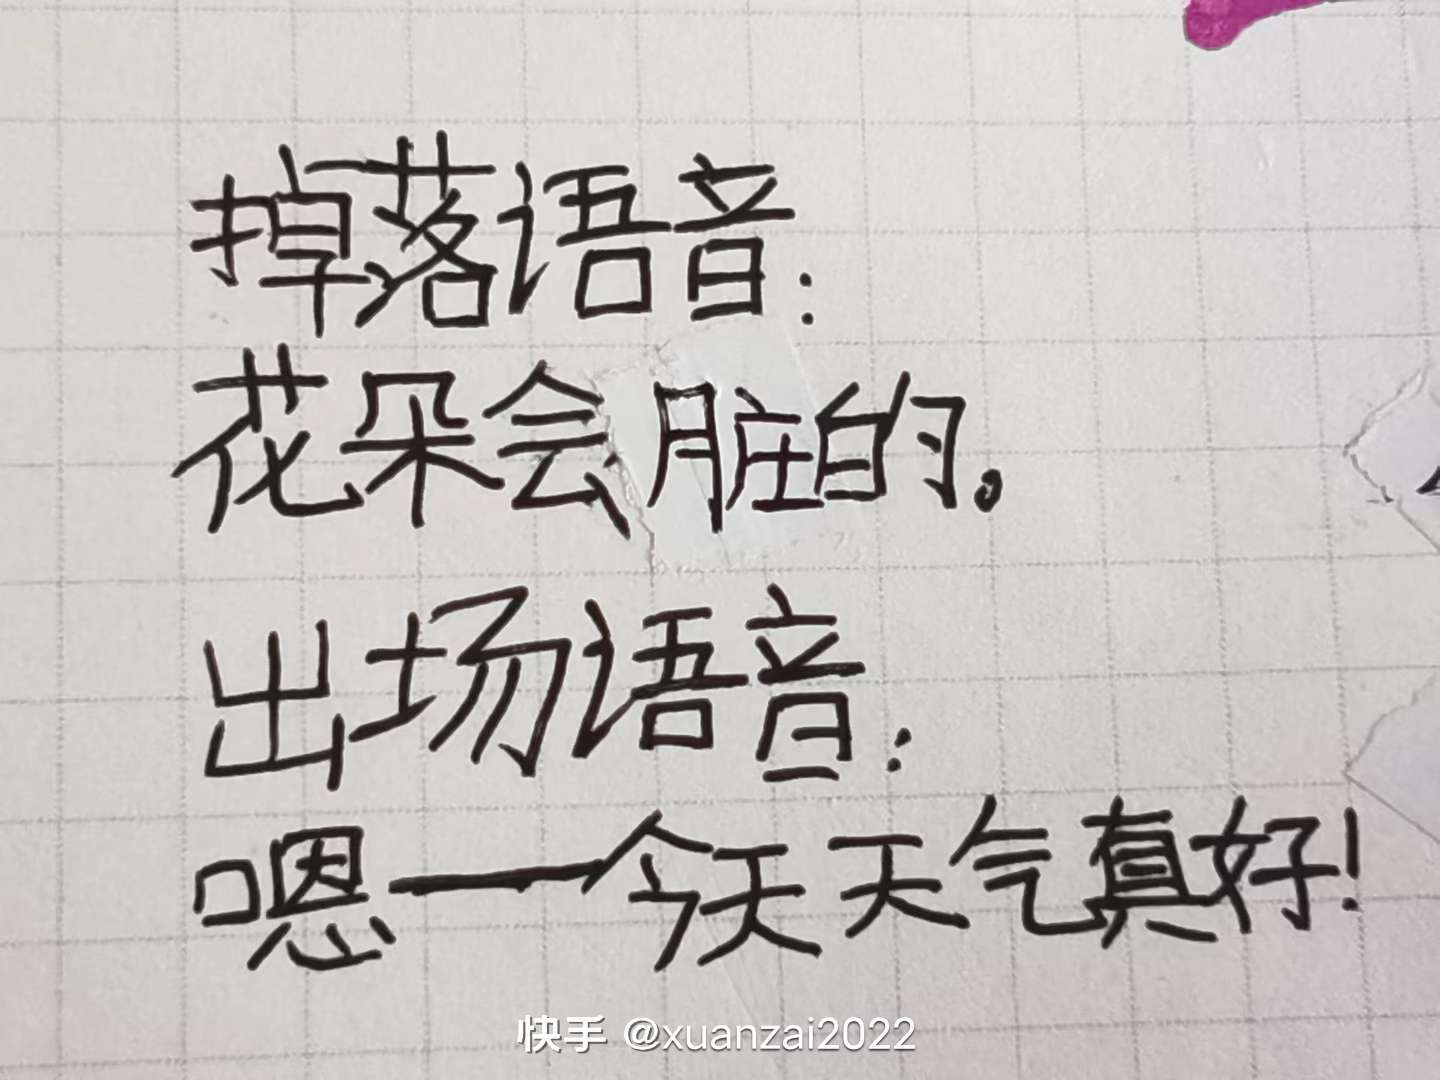 掉落语音：
花朵会脏的。
出场语音：
嗯—今天天气真好！
快手 @xuanzai2022